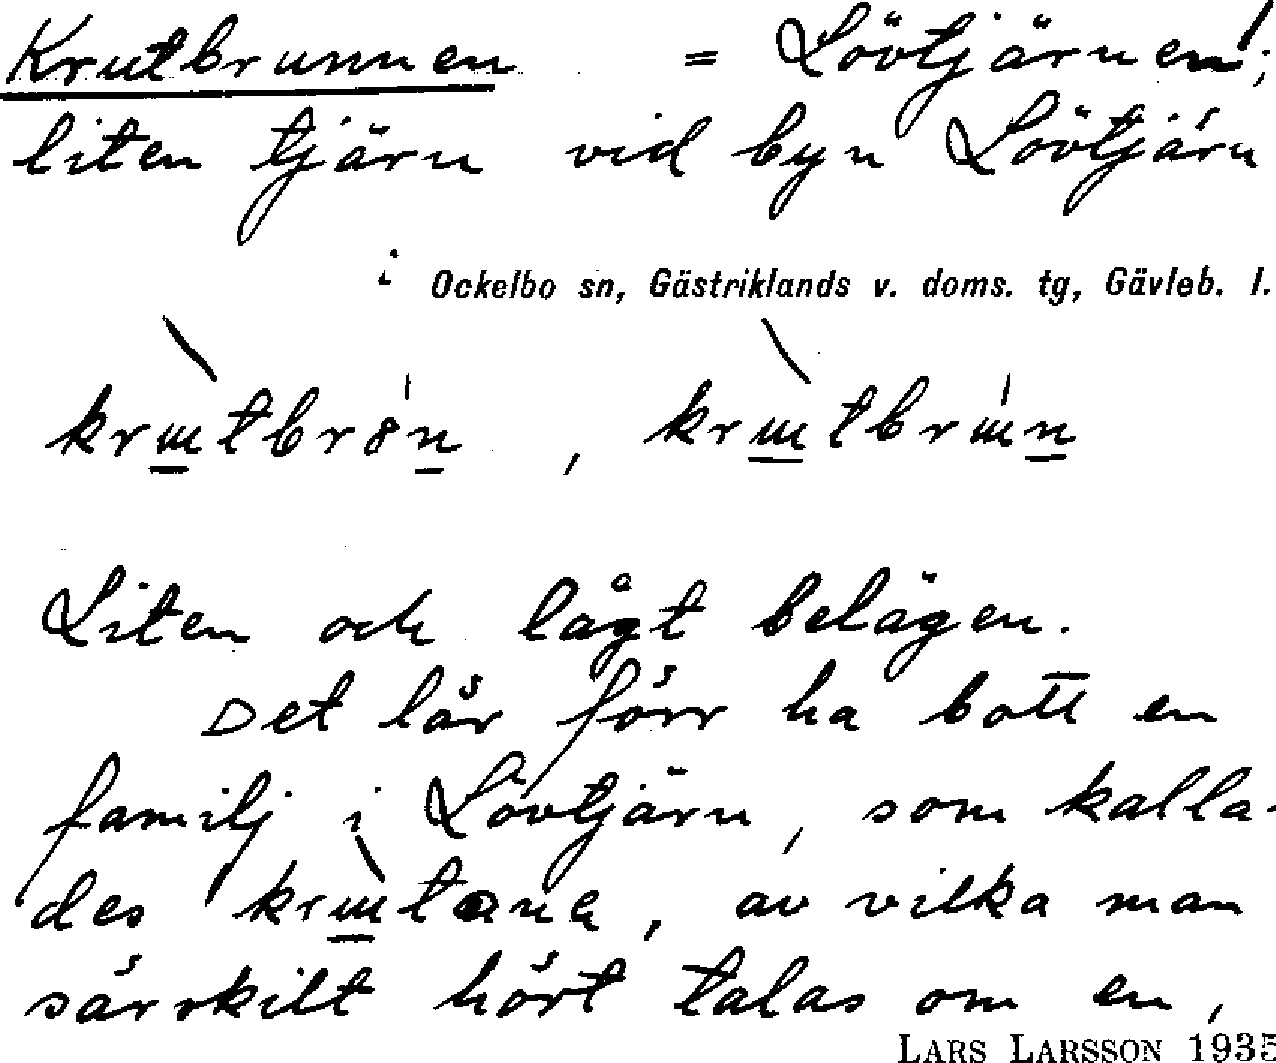 Krutbrunnen = Lövtjärnen!;
liten tjärn vid byn Lövtjärn
i Ockelbo sn, Gästriklands v. doms. tg, Gävleb. l.
krɯ̀tbrȯn, krɯ̀tbrɯ́n
Liten och lågt belägen.
Det lär förr ha bott en
familj i Lövtjärn, som kalla-
des krɯ̀tana, av vilka man
särskilt hört talas om en,
LARS LARSSON 1935